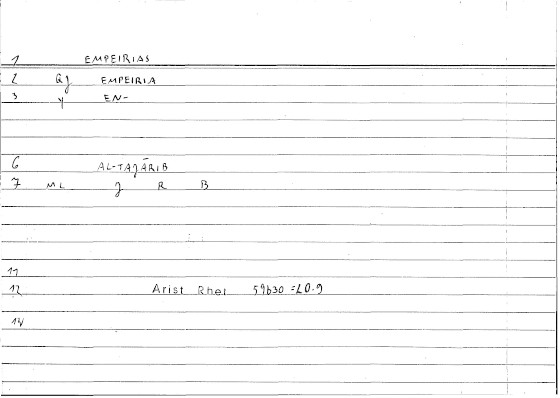 1 EMPEIRIAS
2 Qj EMPEIRIA
3 y EN-
6 AL-TAJĀRIB
7 ML J R B
11
12 Arist Rhet 59b30 =20.9
14